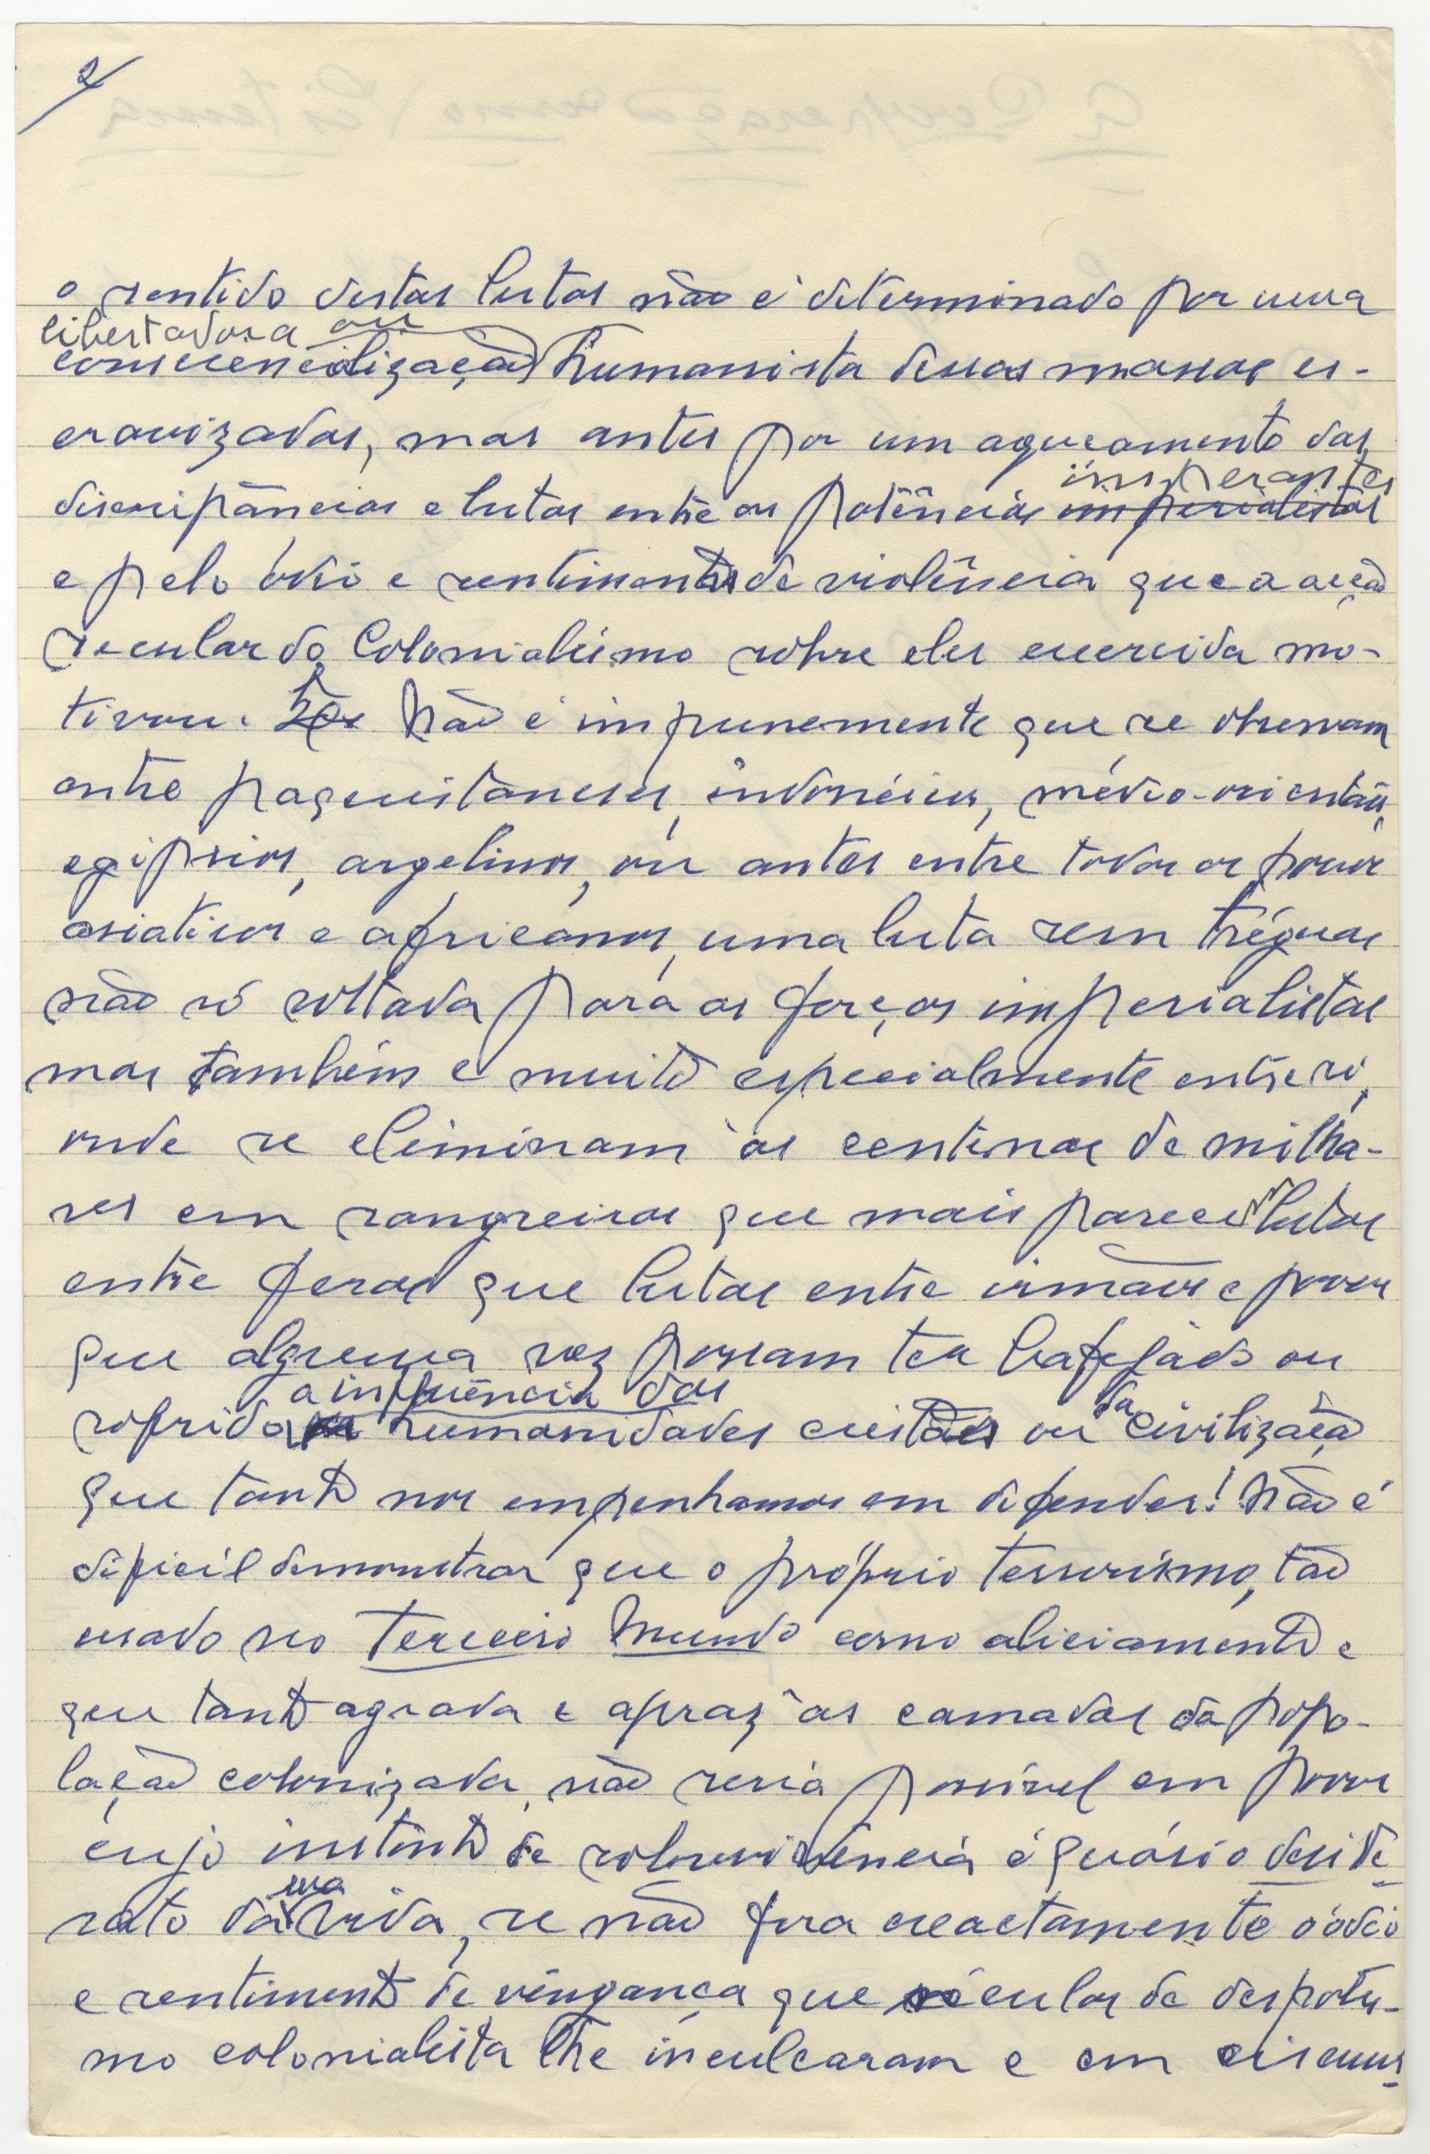 2/
o sentido destas lutas não é determinado por uma
libertadora ou
consciencialização humanista dessas massas es-
cravizadas, mas antes por um aquecamento das
inoperantes
discripâncias e lutas entre as potências imperialistas
e pelo ódio e sentimentos de violência que a acção
secular do Colonialismo sobre eles exercida mo-
tivou. Não é impunemente que se observam
entre paquistaneses, indonésios, médio-orientais,
egípsios, argelinos, ou antes entre todos os povos
asiaticos e africanos, uma luta sem tréguas
não só voltada para as forças imperialistas
mas também e muito especialmente entre si,
onde se eliminam às centenas de milha-
res em sangreiras que mais parecem lutas
entre feras que lutas entre irmãos e povos
que alguma vez possam ter bafejado ou
a influência das
sofrido humanidades cristãs ou da civilização
que tanto nos empenhamos em defender! Não é
dificil demonstrar que o próprio terrorismo, tão
usado no Terceiro Mundo como aliciamento e
que tanto agrada e apraz às camadas da popo-
lação colonizada, não seria possível em povos
cujo instinto de sobrevivência é quási o deside-
rato da sua vida, se não fora exactamente o ódio
e sentimento de vingança que séculos de despotis-
mo colonialista lhe inculcaram e em circuns-